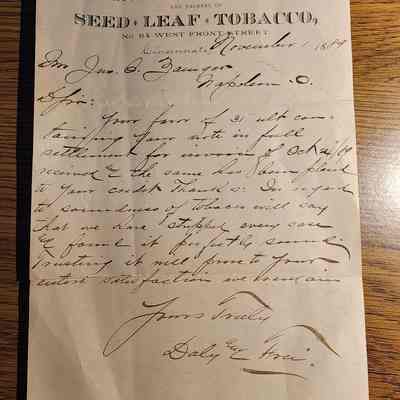 AND PACKERS OF
SEED • LEAF • TOBACCO,
No 84 WEST FRONT STREET
Cincinnati, November 1, 1879
Jno. C.
Napoleon O.
Your favor of 31 ult con-
taining your note in full
settlement for invoice of Oct
received & the same has been placed
to your credit Thanks: In regard
to soundness of tobacco will say
that we have stripped every case
& found it perfectly sound
Trusting it will prove to your
entire satisfaction we remain
Yours Truly
Daly